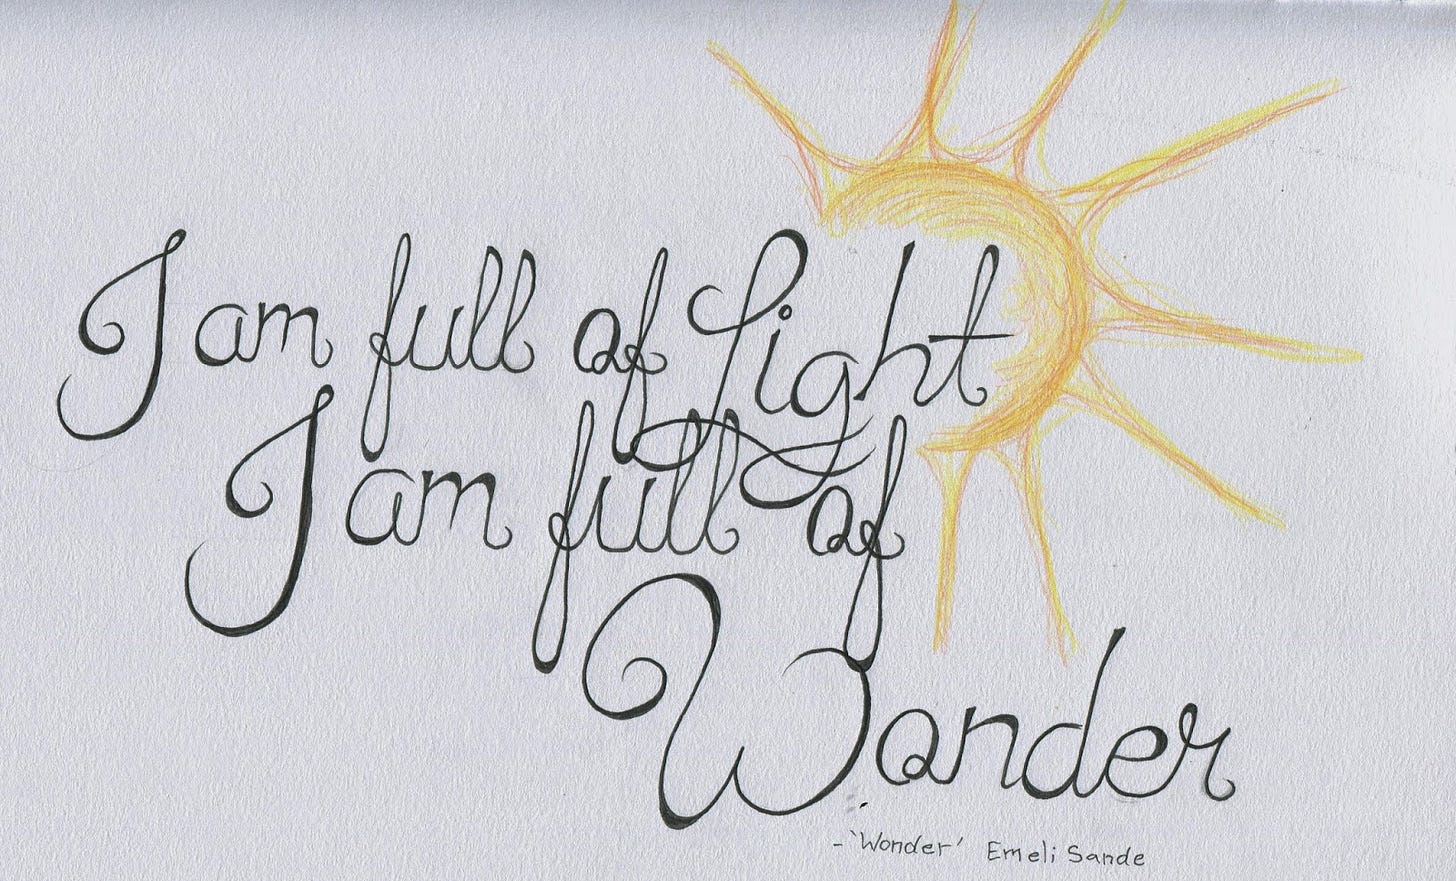 I am full of Light
I am full of
Wonder
- 'Wonder' Emeli Sande